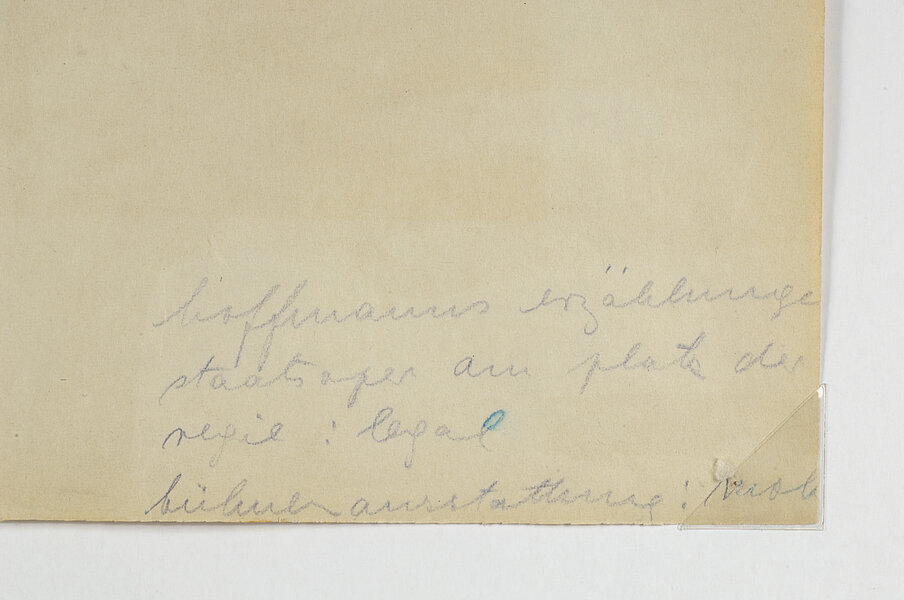 hoffmanns erzählunge
staatsoper am platz der
regie : legal
bühnenausstattung : moh